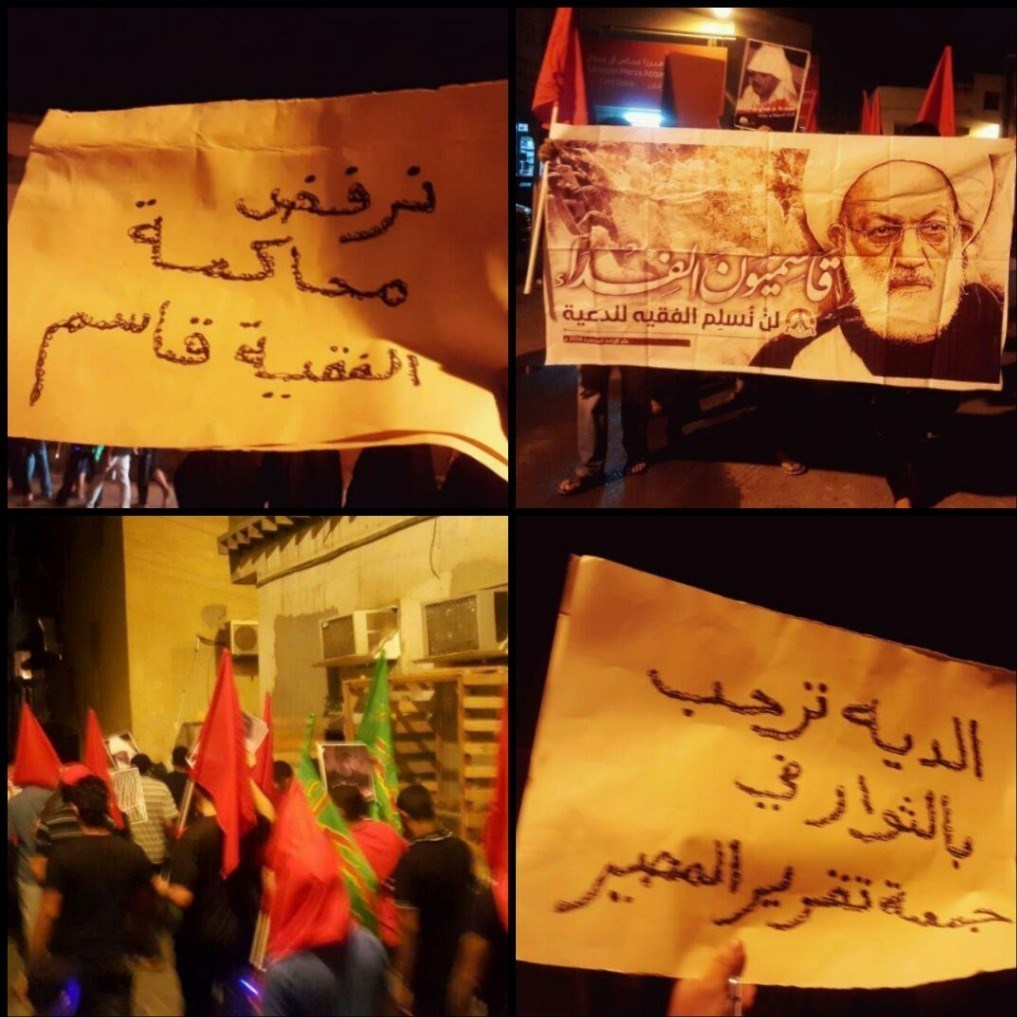 نرفض
محاكمة
الفقية قاسم
قاسميون الفداء
لن نُسلِم الفقيه للدعية
الديه ترحب
بالثوار في
جمعة تقرير المصير